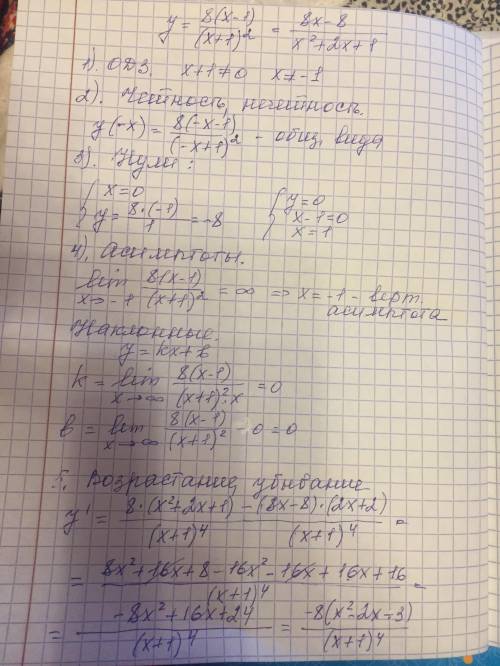 y = 8(x-1)/(x+1)² = 8x-8/x²+2x+1
1). ОДЗ. x+1≠0 x≠-1
2). Четность, нечетность.
y(-x) = 8(-x-1)/(-x+1)² - общ. вида
3). Нули:
{ x=0 { y=0
{ y= 8·(-1)/1 = -8 x-1=0
x=1
4). Асимптоты.
lim x→-1 8(x-1)/(x+1)² = ∞ ⇒ x=-1 - верт.
асимптота
Наклонные.
y=kx+b
k = lim x→∞ 8(x-1)/(x+1)²·x = 0
b = lim x→∞ 8(x-1)/(x+1)² - 0 = 0
5. Возрастание, убывание
y' = 8·(x²+2x+1)/(x+1)⁴ - (8x-8)·(2x+2)/(x+1)⁴ =
= 8x²+16x+8-16x²-16x+16x+16/(x+1)⁴ =
= -8x²+16x+24/(x+1)⁴ = -8(x²-2x-3)/(x+1)⁴